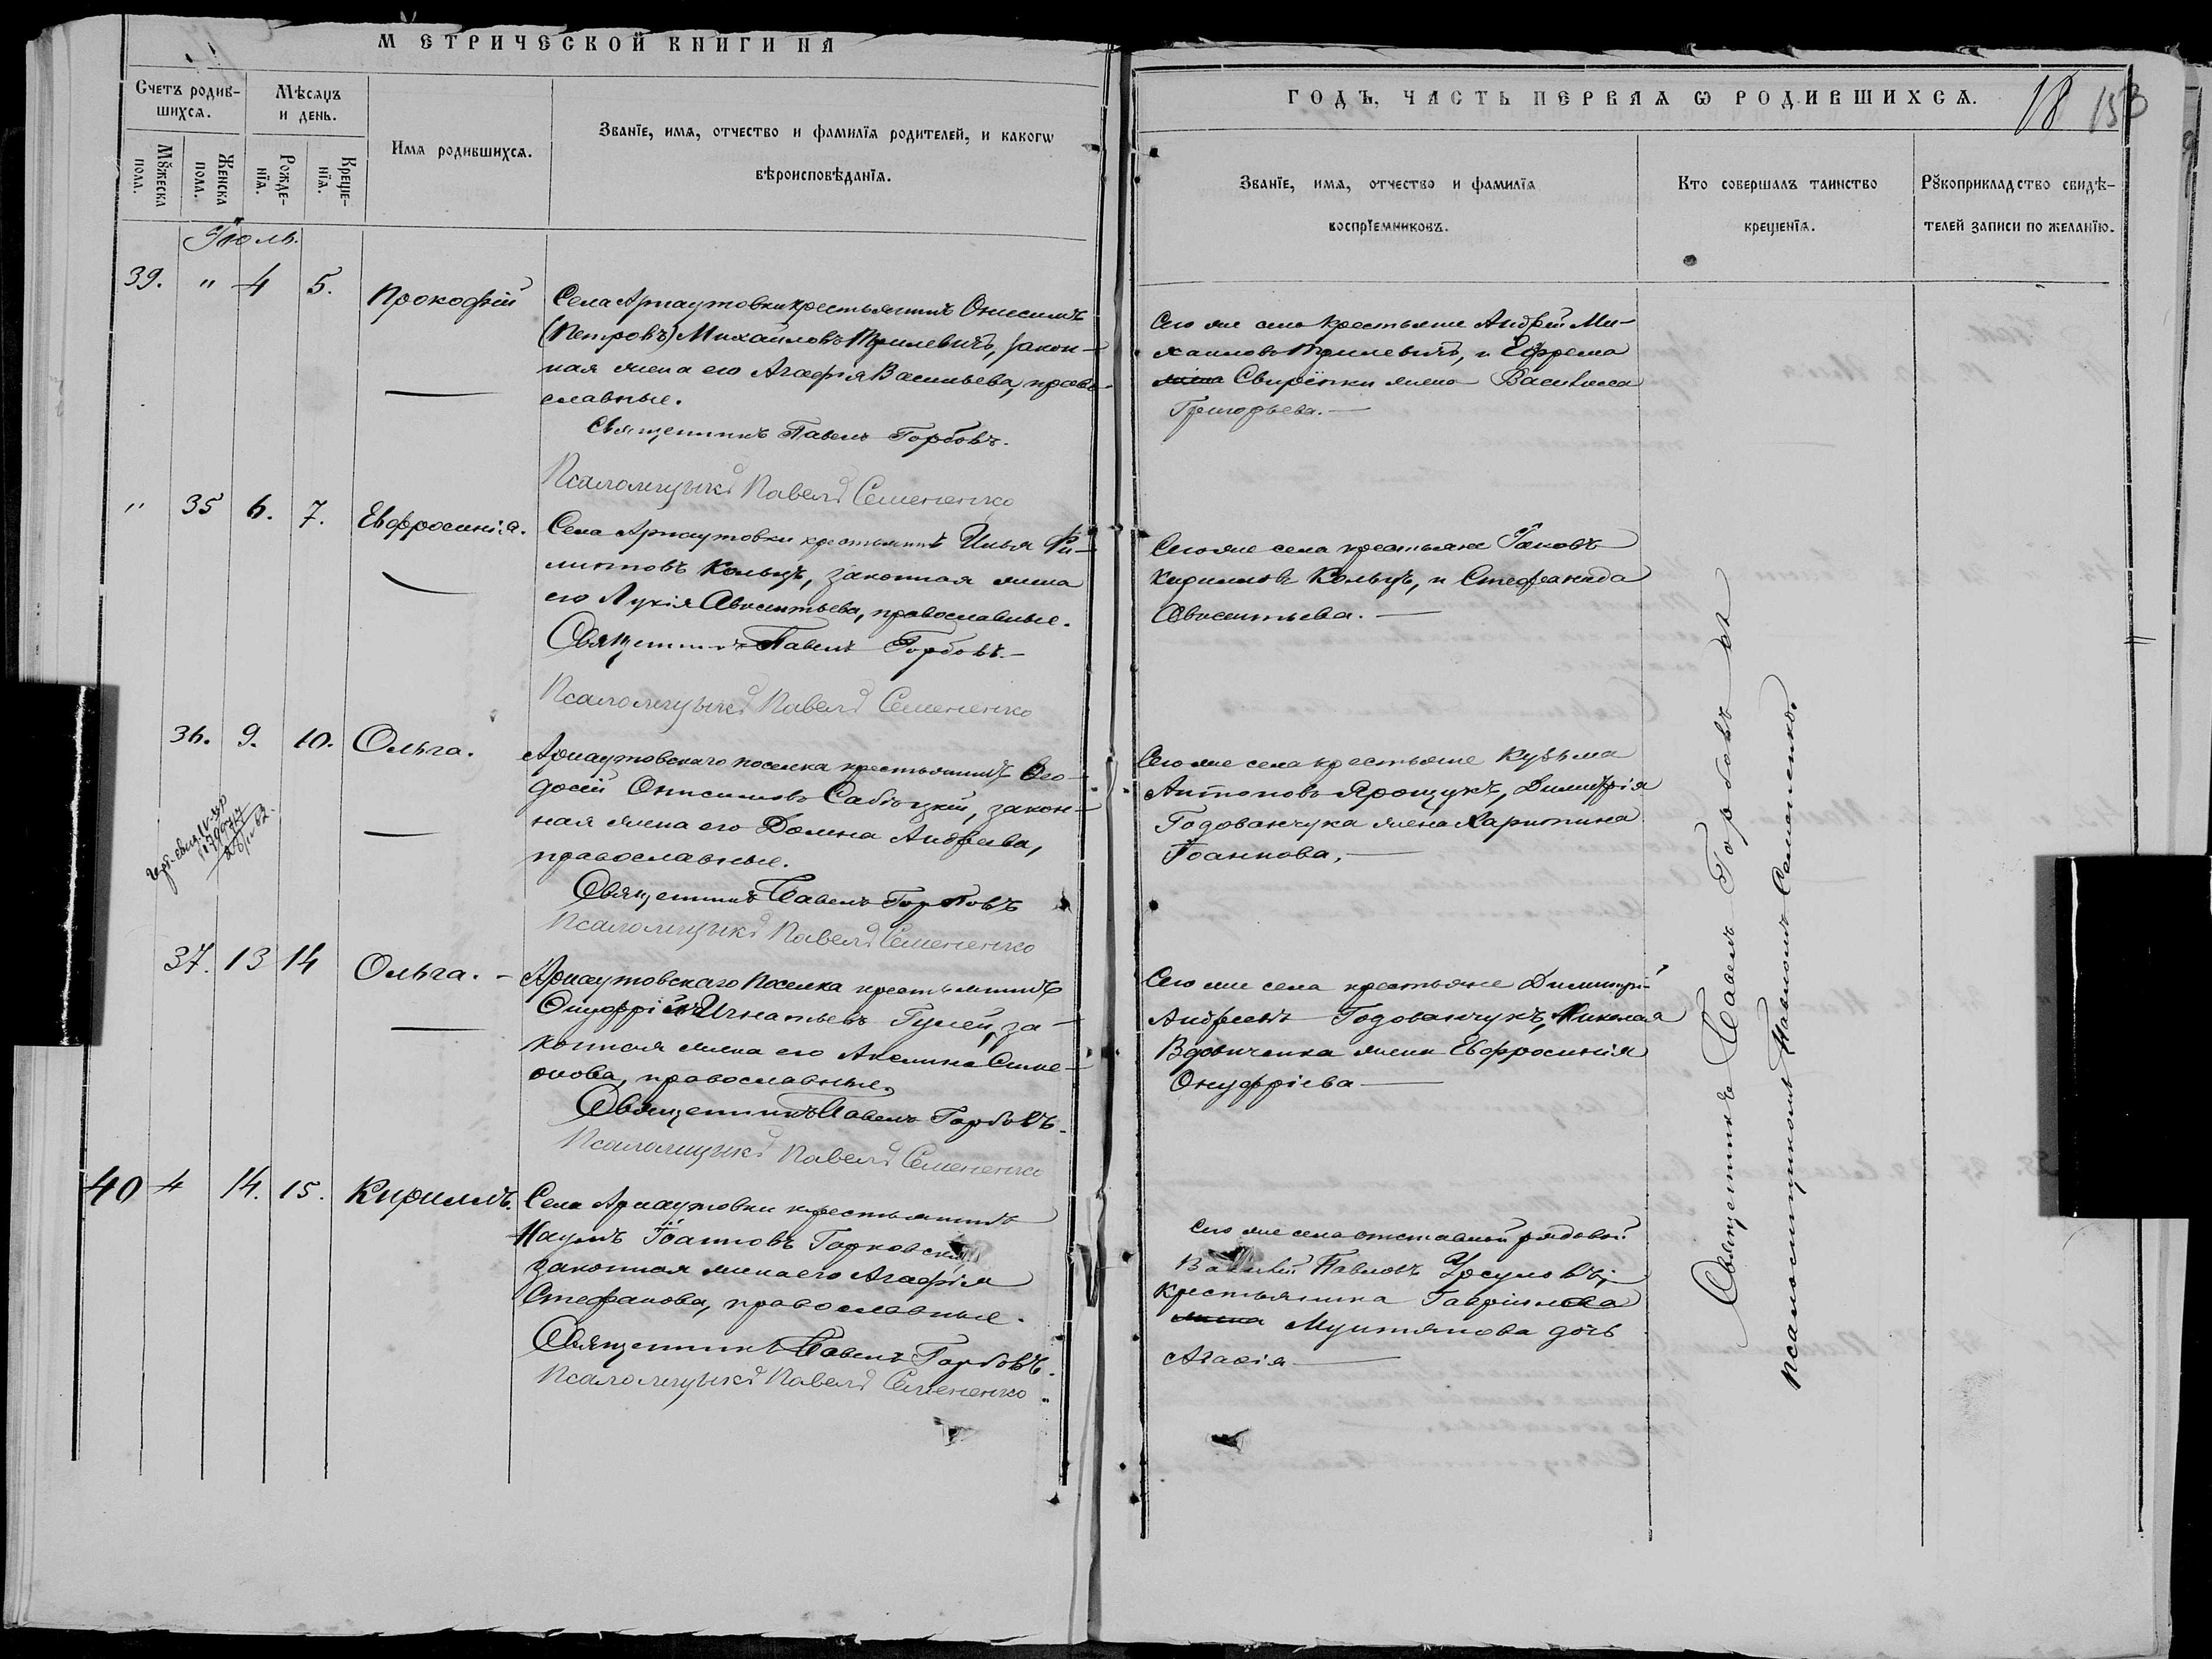 МЕТРИЧЕСКОЙ КНИГИ НА
Счетъ родив-
шихся.
Мѣсяцъ
и день.
Имя родившихся.
Званїе, имя, отчество и фамилїя родителей, и какогѡ
вѣроисповѣданїя.
Мꙋжеска
пола.
Женска
пола.
Рожде-
нїя.
Креще-
нїя.
Іюль.
39. " 4 5. Прокофій
Села Арнаутовки крестьянинъ Онисимъ
(Петровъ) Михаиловъ Трилевичъ, закон-
ная жена его Агафія Васильева, право-
славные.
Священникъ Павелъ Горбовъ.
Псаломщикъ Павелъ Семененко
" 35 6. 7. Евфросинія.
Села Арнаутовки крестьянинъ Илья Фи-
липповъ Кольцъ, законная жена
его Лукія Авксентьева, православные.
Священникъ Павелъ Горбовъ.
Псаломщикъ Павелъ Семененко
36. 9. 10. Ольга.
Арнаутовскаго поселка крестьянинъ Ѳео-
досій Онисимовъ Сабіцкій, закон-
ная жена его Домна Андреева,
православные.
Священникъ Павелъ Горбовъ
Псаломщикъ Павелъ Семененко
37. 13 14 Ольга.
Арнаутовскаго поселка крестьянинъ
Онуфрій Игнатьевъ Гулей, за-
конная жена его Акелина Симе-
онова, православные.
Священникъ Павелъ Горбовъ.
Псаломщикъ Павелъ Семененко
40 14. 15. Кириллъ.
Села Арнаутовки крестьянинъ
Наумъ Іоанновъ
законная жена его Агафія
Стефанова, православные.
Священникъ Павелъ Горбовъ.
Псаломщикъ Павелъ Семененко
ГОДЪ, ЧАСТЬ ПЕРВАЯ Ѡ РОДИВШИХСЯ.
18 153
Званїе, имя, отчество и фамилїя
воспрїемниковъ.
Кто совершалъ таинство
крещенїя.
Рꙋкоприкладство свидѣ-
телей записи по желанїю.
Сего же села крестьяне Андрей Ми-
хаиловъ Трилевичъ, и Ефрема
Свирёпки жена Василиса
Григорьева.
Сего же села крестьяне Іаковъ
Кирилловъ Кольцъ, и Стефанида
Авксентьева.
Сего же села крестьяне Кузьма
Антоновъ Ярощукъ, Димитрія
Годованчука жена Харитина
Іоаннова.
Сего же села крестьяне Димитрій
Андреевъ Годованчукъ, Николая
Вдовиченка жена Евфросинія
Онуфріева
Сего же села отставной рядовой
Василій Павловъ
крестьянина Гавріила
Мунтянова дочь
Агафія
Священникъ Павелъ Горбовъ съ
псаломщикомъ Павломъ Семененко.